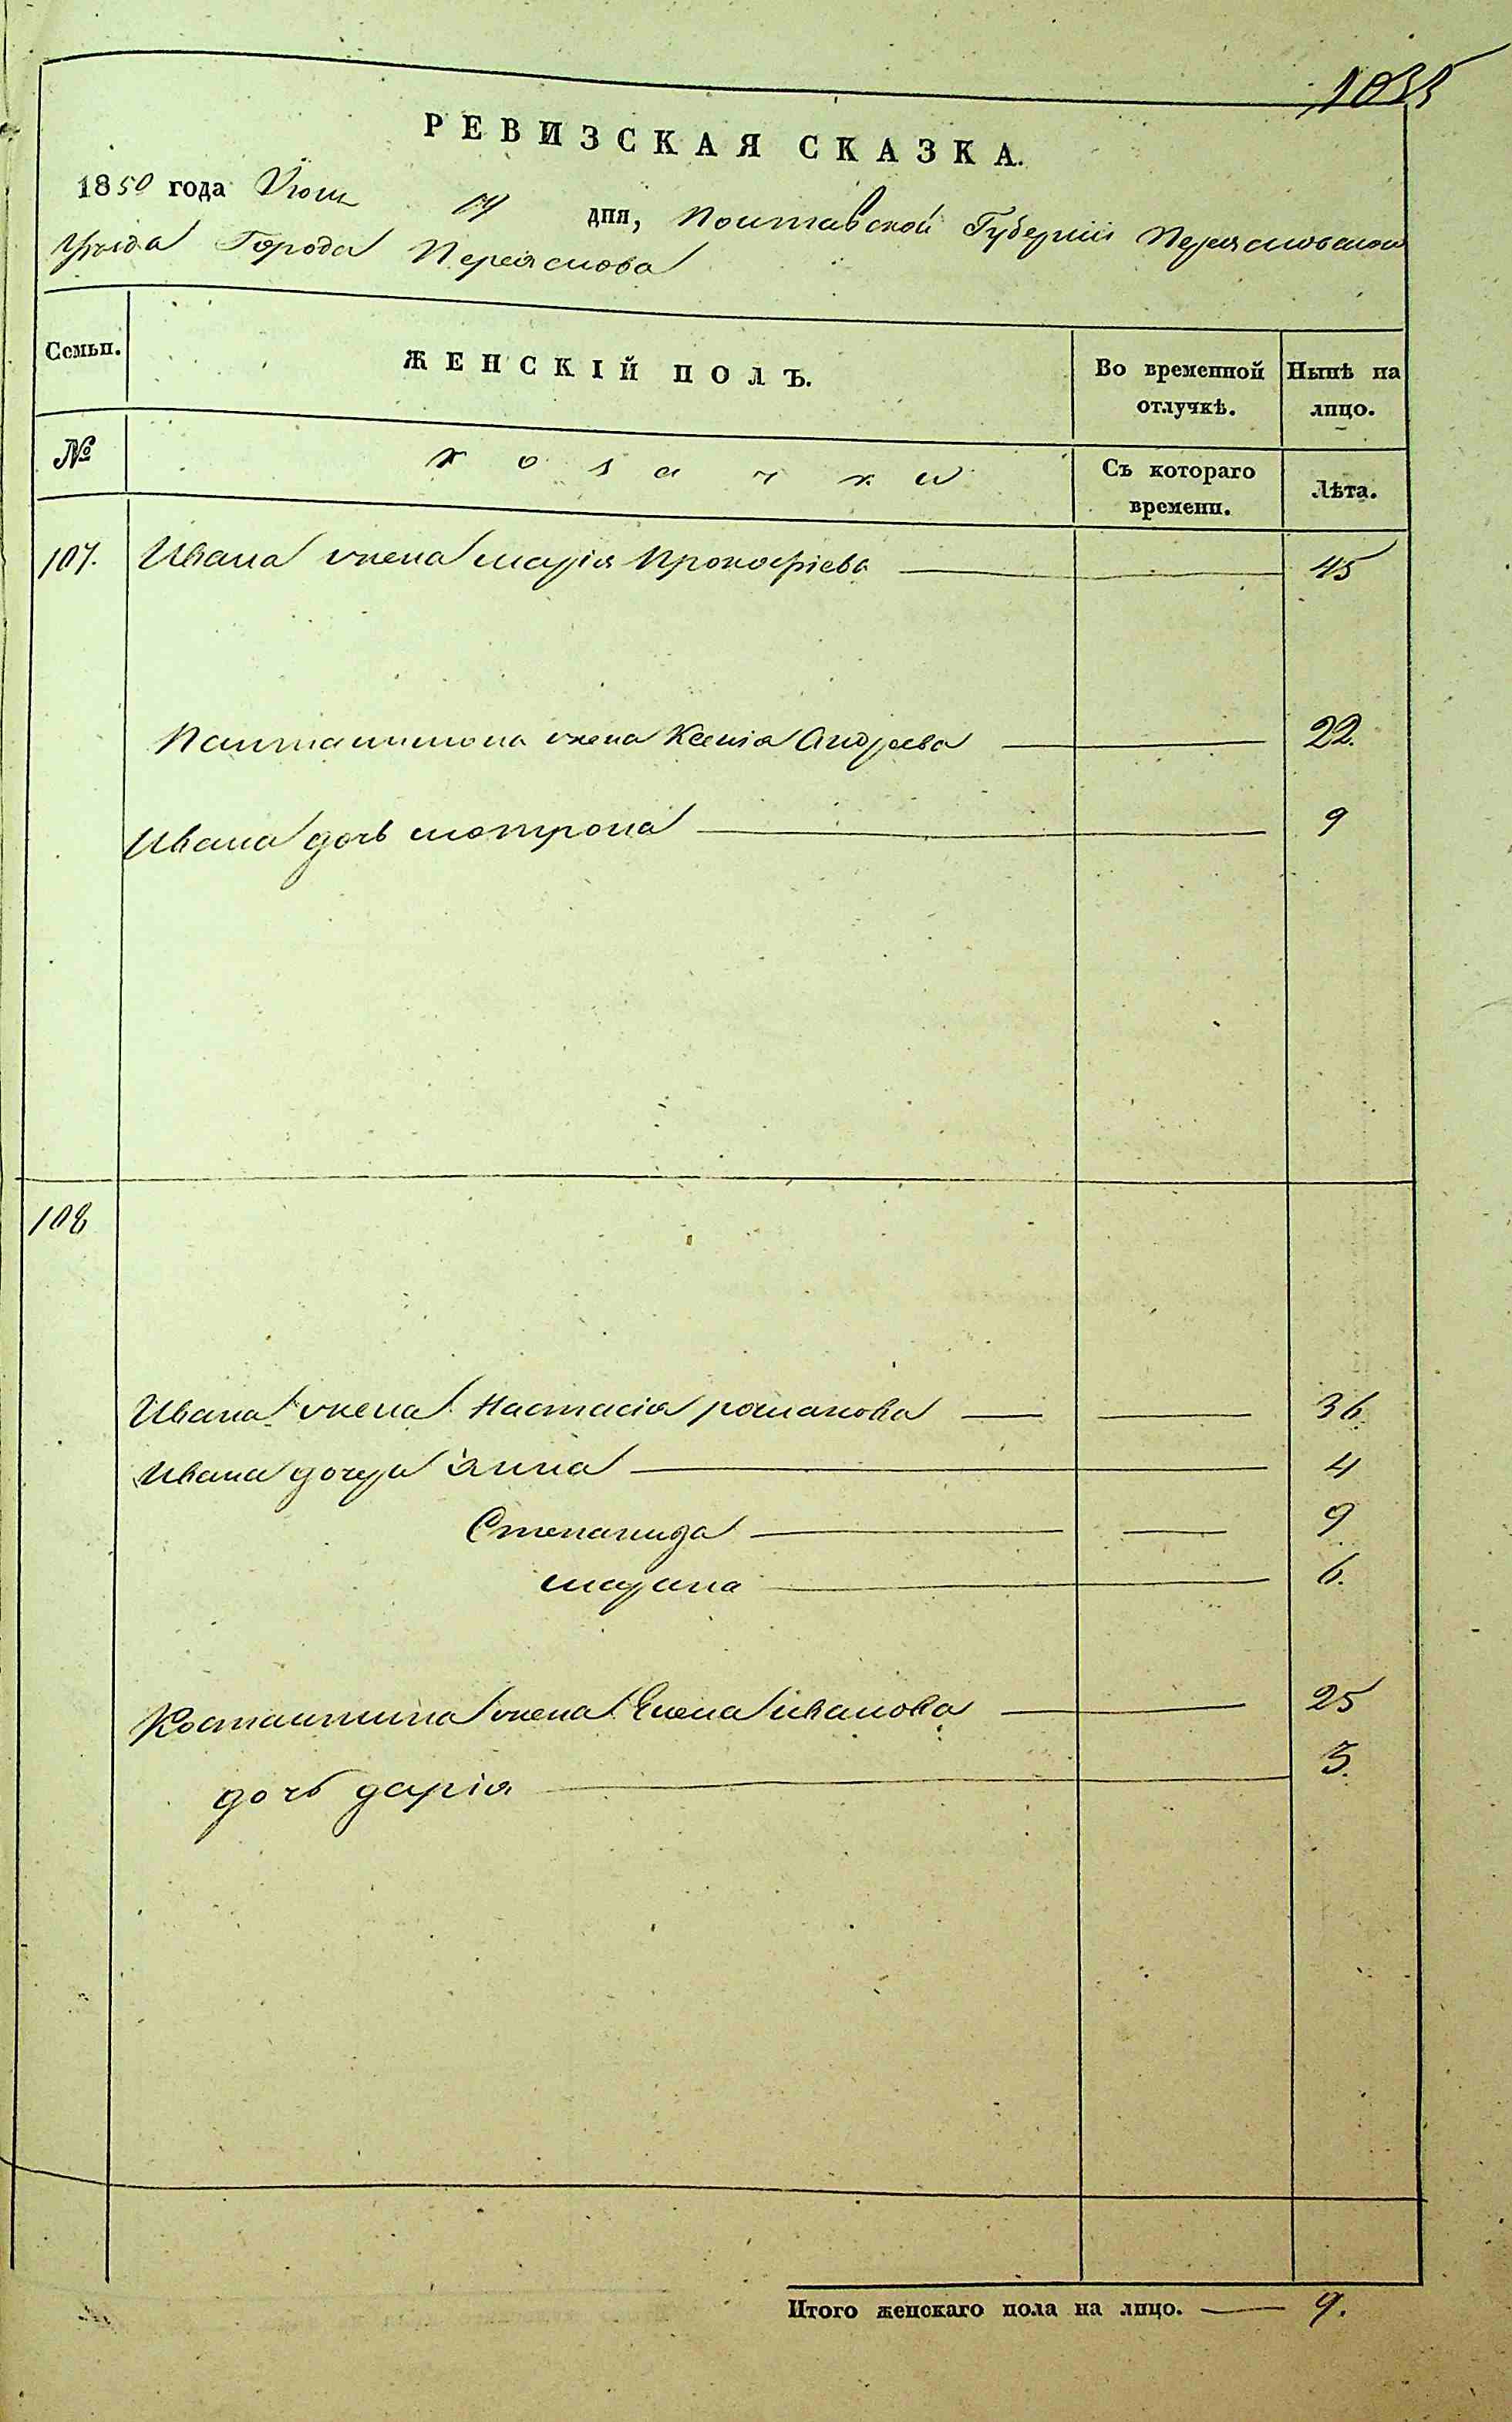 1035
РЕВИЗСКАЯ СКАЗКА.
1850 года Июня 17 дня, Полтавской Губернии Переясловского
Уезда Города Переяслова
Семьи. ЖЕНСКІЙ ПОЛЪ. Во временной отлучкѣ. Нынѣ на лицо.
№ козачки Съ котораго времени. Лѣта.
107. Ивана жена марія Прокофіева 45
Пантелимона жена Ксенія Андреева 22.
Ивана дочь мотрона 9
108
Ивана жена Настасія романова 36
Ивана дочери анна 4
Степанида 9
марина 6.
Костантина жена Елена иванова 25
дочь дарія 3.
Итого женскаго пола на лицо. 9.